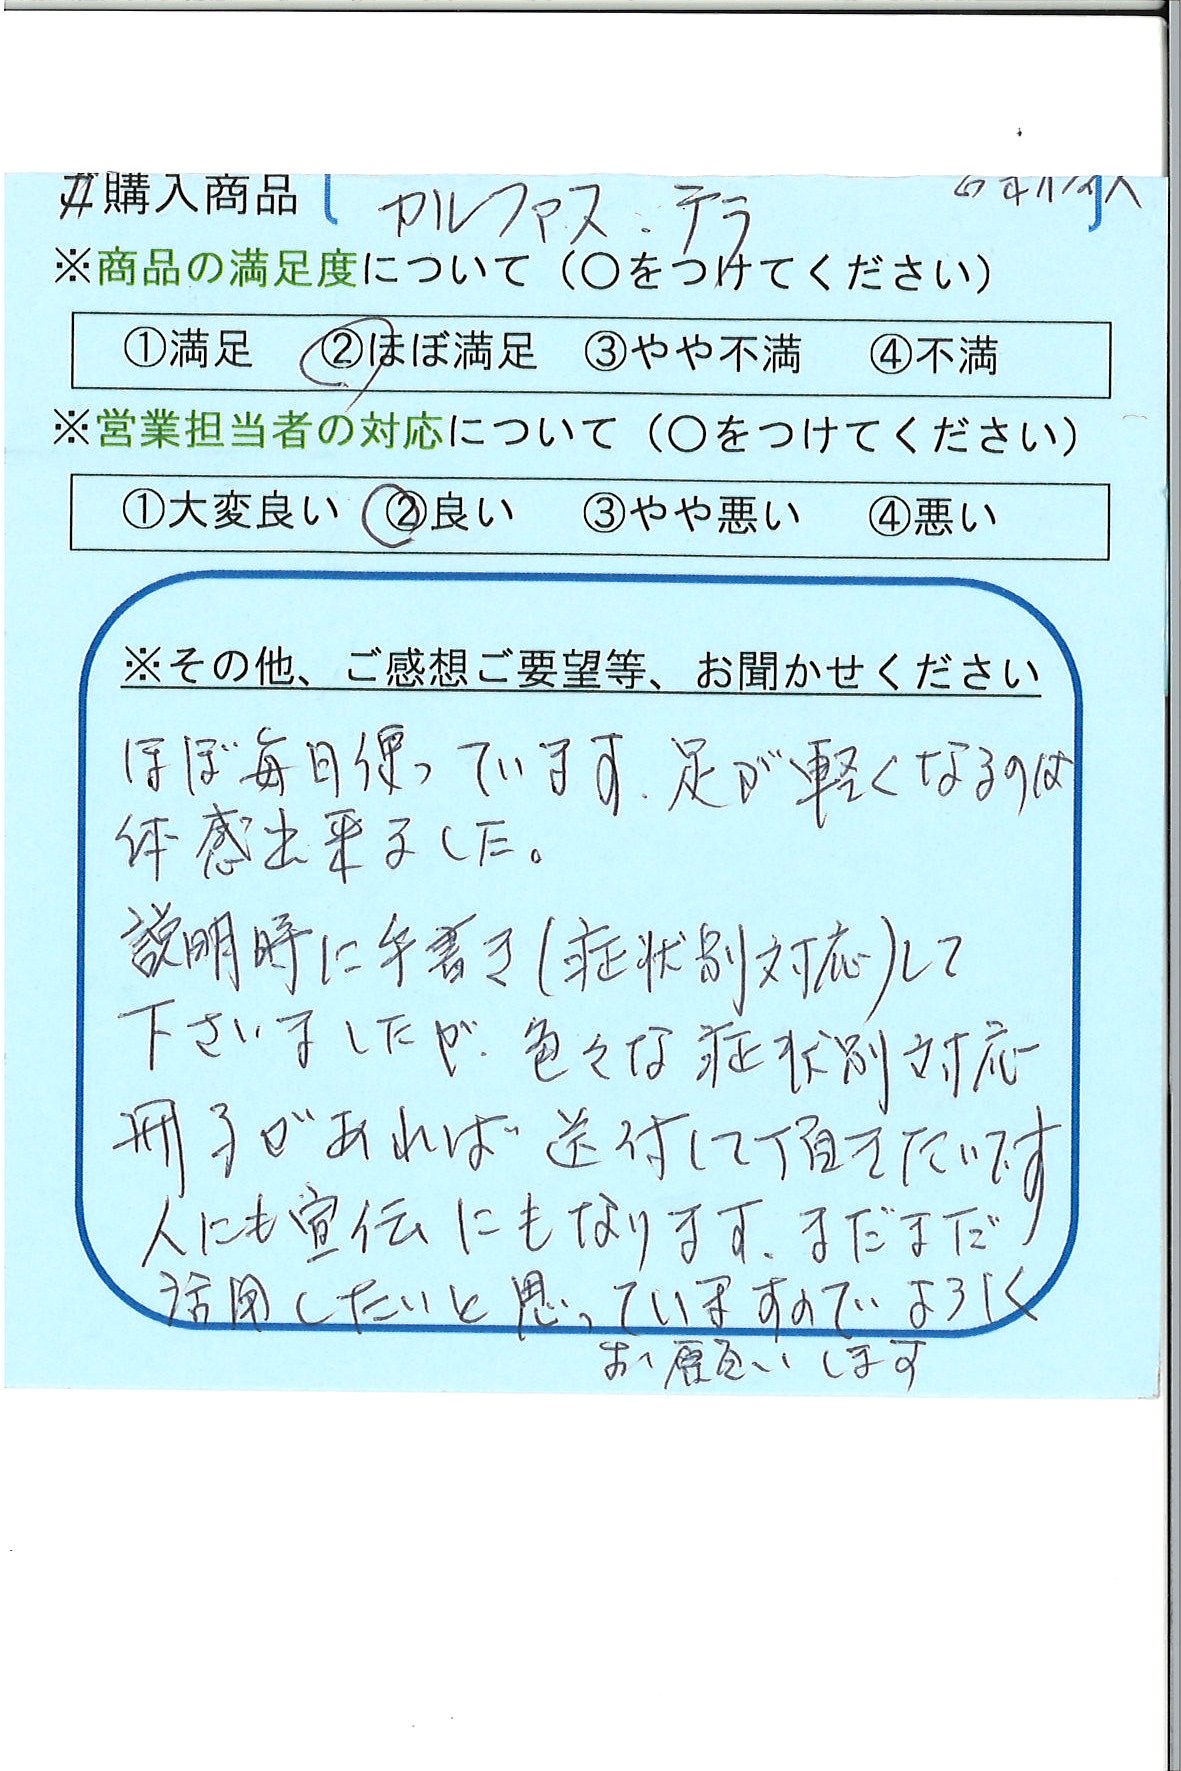 購入商品
カルファス.テラ
※商品の満足度について（○をつけてください）
①満足 ②ほぼ満足 ③やや不満 ④不満
※営業担当者の対応について（○をつけてください）
①大変良い ②良い ③やや悪い ④悪い
※その他、ご感想ご要望等、お聞かせください
ほぼ毎日使っています.足が軽くなるのは
体感出来ました。
説明時に手書き(症状別対応)して
下さいましたが.色々な症状別対応
冊子があれば送付して頂きたいです
人にも宣伝にもなります.まだまだ
活用したいと思っていますのでよろしく
お願いします